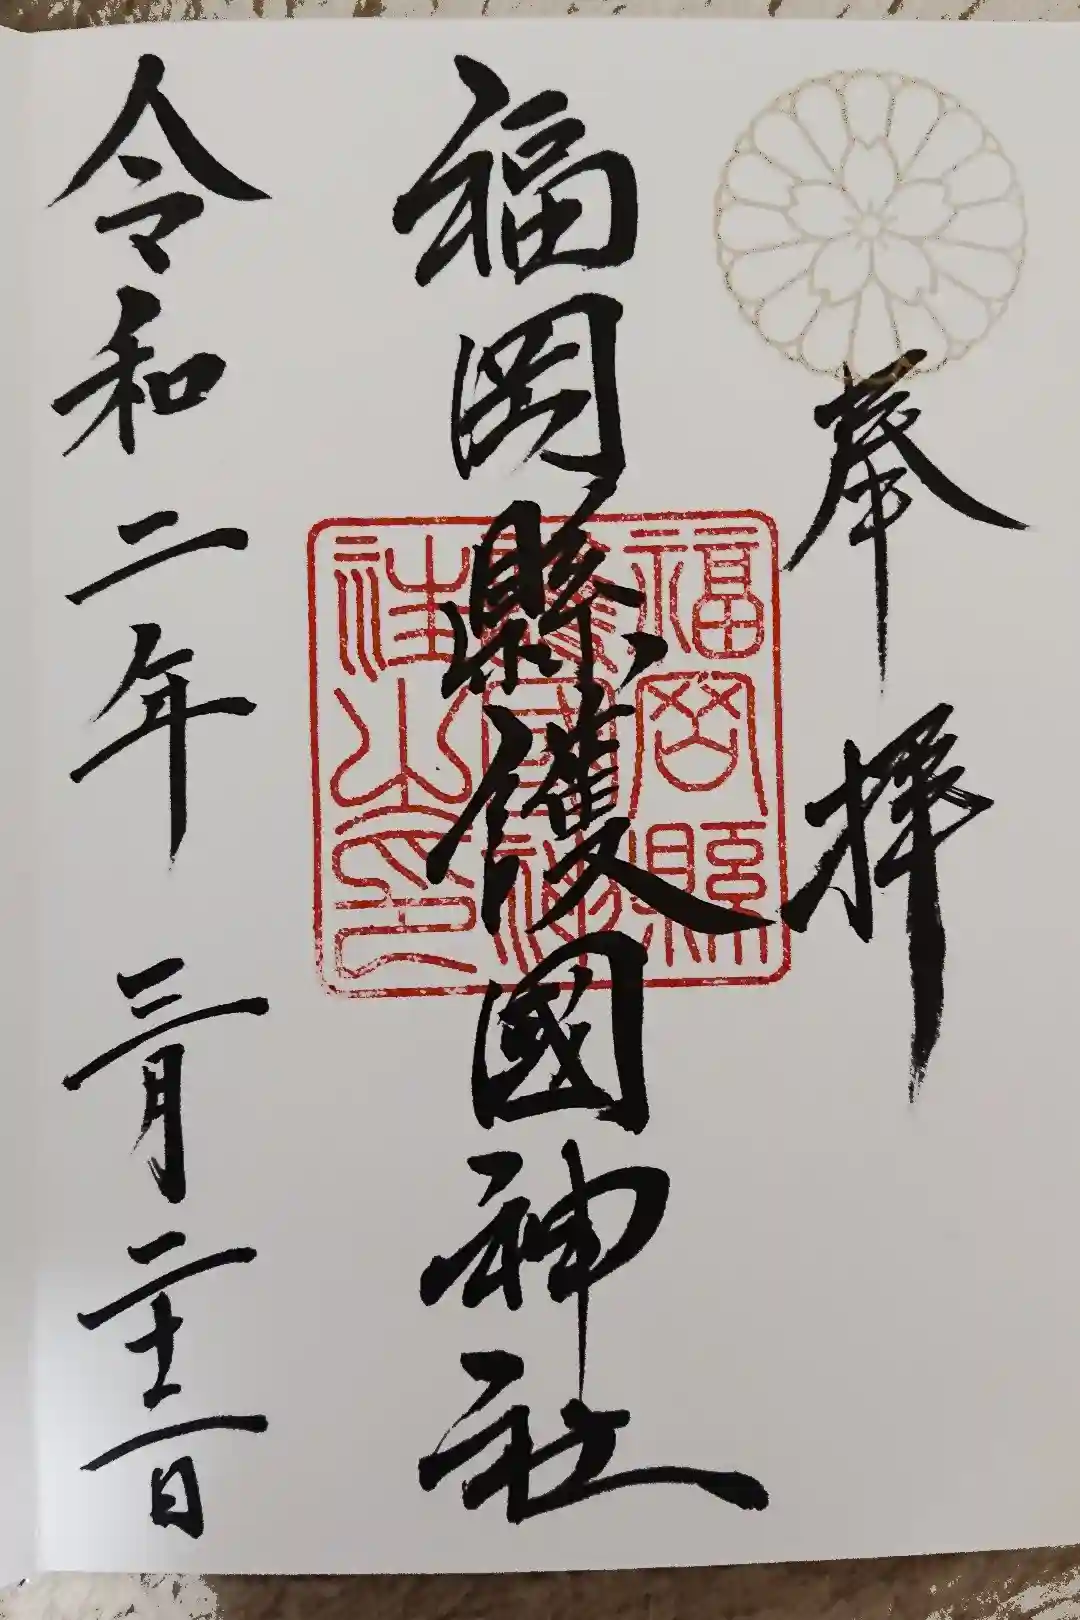 奉拝
福岡縣護國神社
令和二年 三月二十二日
福岡縣
護國神
社之印